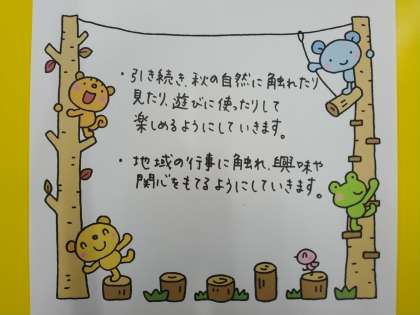 ・引き続き、秋の自然に触れたり
見たり、遊びに使ったりして
楽しめるようにしていきます。
・地域の行事に触れ、興味や
関心をもてるようにしていきます。